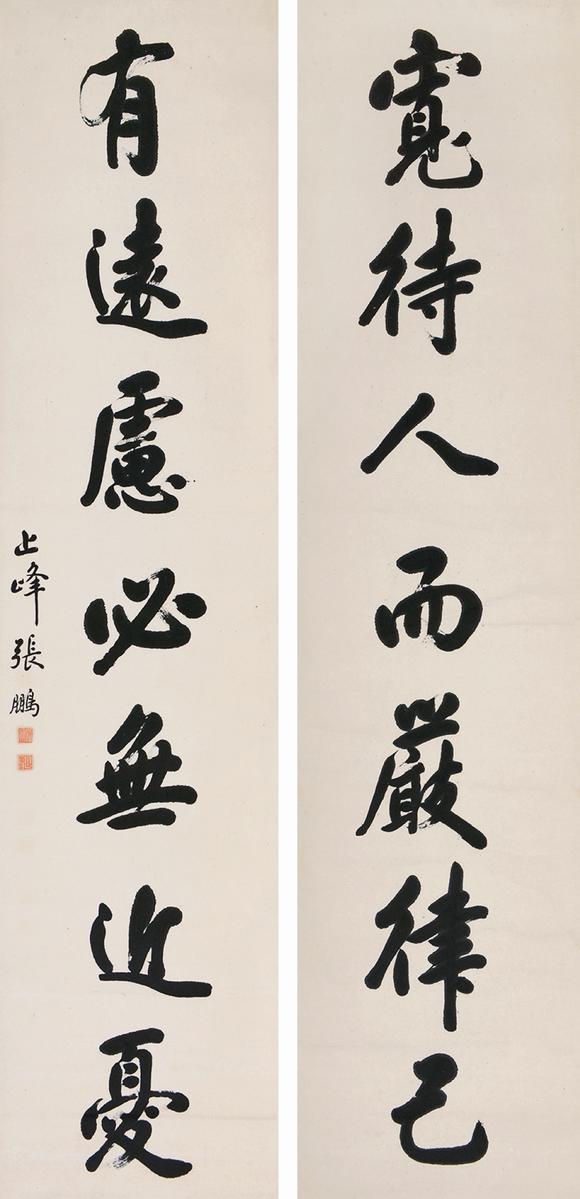 寬待人而嚴律己
有遠慮必無近憂
止峰張鵬